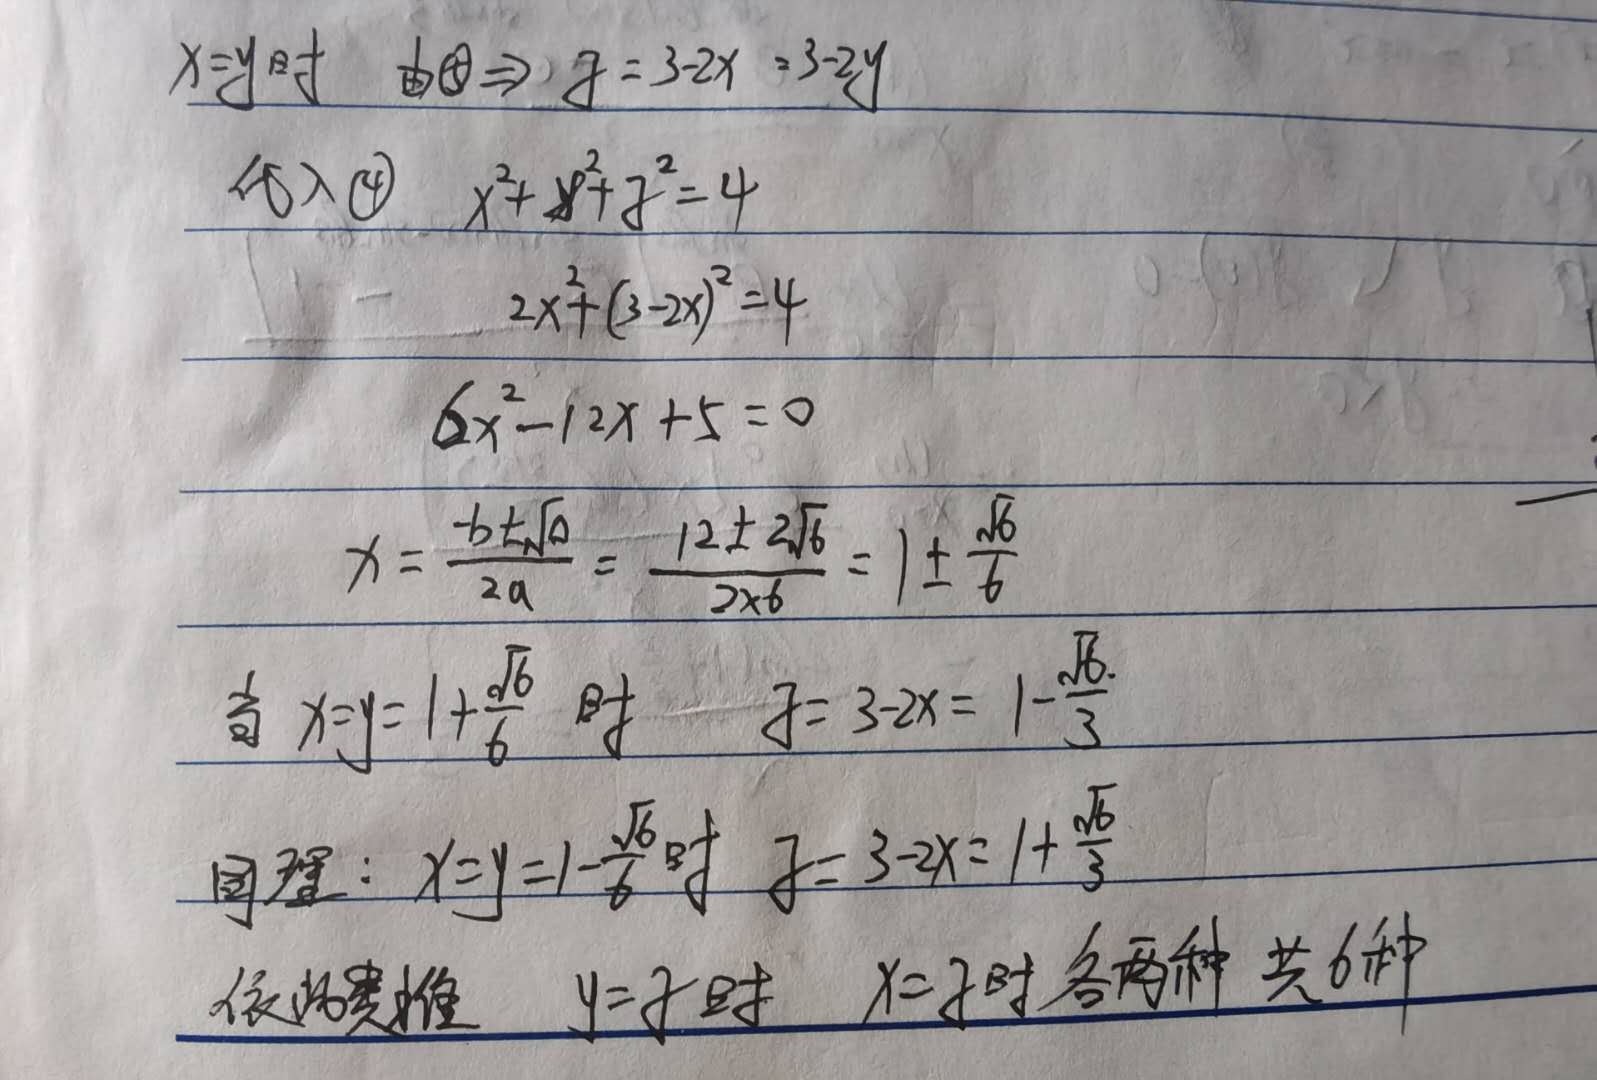 x=y时 由⑤⇒ z=3-2x =3-2y
代入④ x²+y²+z²=4
2x²+(3-2x)²=4
6x²-12x+5=0
x=\frac{-b±√Δ}{2a}=\frac{12±2√6}{2×6}=1±\frac{√6}{6}
当 x=y=1+\frac{√6}{6} 时 z=3-2x=1-\frac{√6}{3}
同理: x=y=1-\frac{√6}{6}时 z=3-2x=1+\frac{√6}{3}
依此类推 y=z时 x=z时 各两种 共6种